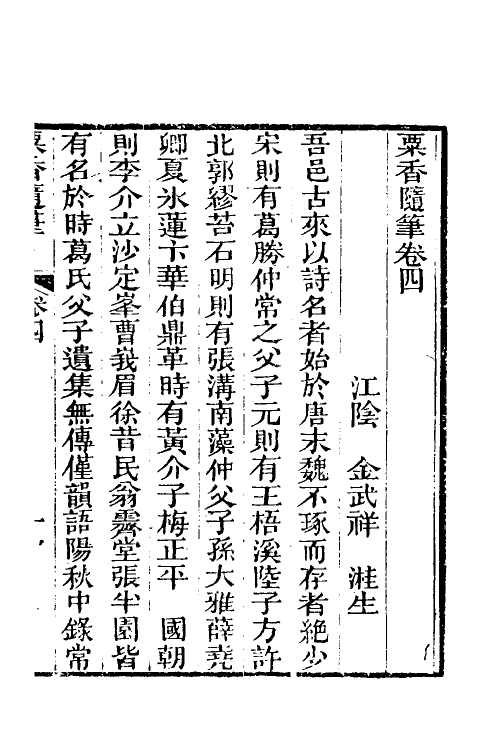 粟香隨筆卷四
江陰　金武祥　溎生
吾邑古來以詩名者始於唐末魏不琢而存者絶少
宋則有葛勝仲常之父子元則有王梧溪陸子方許
北郭繆苔石明則有張溝南藻仲父子孫大雅薛堯
卿夏氷蓮卞華伯鼎革時有黃介子梅正平　國朝
則李介立沙定峯曹峩眉徐昔民翁霽堂張半園皆
有名於時葛氏父子遺集無傳僅韻語陽秋中錄常
粟香隨筆　卷四　一